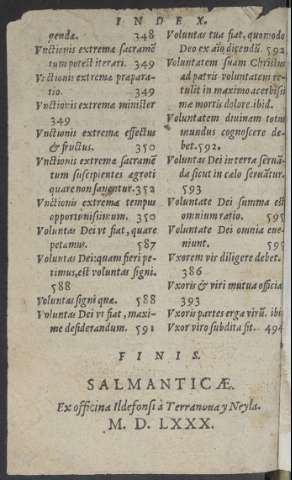 INDEX.
gendæ. 348
Vnctionis extremæ sacramē
tum potest iterari. 349
Vnctionis extremæ præpara-
tio. 349
Vnctionis extremæ minister
349
Vnctionis extremæ effectus
& fructus. 350
Vnctionis extremæ sacramē
tum suscipientes agroti
quare non sanentur. 352
Vnctionis extremæ tempus
opportunissimum. 350
Voluntas Dei vt fiat, quare
petamus. 587
Voluntas Dei: quam fieri pe-
timus, est voluntas signi.
588
Voluntas signi quæ. 588
Voluntas Dei vt fiat, maxi-
me desiderandum. 591
Voluntas tua fiat, quomodo
Deo ex aīo dicendū. 592
Voluntatem suam Christus
ad patris voluntatem re-
tulit in maximo acerbissi
mæ mortis dolore. ibid.
Voluntatem diuinam totus
mundus cognoscere de-
bet. 592.
Voluntas Dei in terra seruā-
da sicut in cælo seruātur.
593
Voluntate Dei summa est
omnium ratio. 595
Voluntate Dei omnia eue-
niunt. 595
Vxorem vir diligere debet.
386
Vxoris & viri mutua officia
393
Vxoris partes erga virū. ibi
Vxor viro subdita sit. 494
FINIS.
SALMANTICÆ.
Ex officina Ildefonsi à Terranoua y Neyla.
M. D. LXXX.